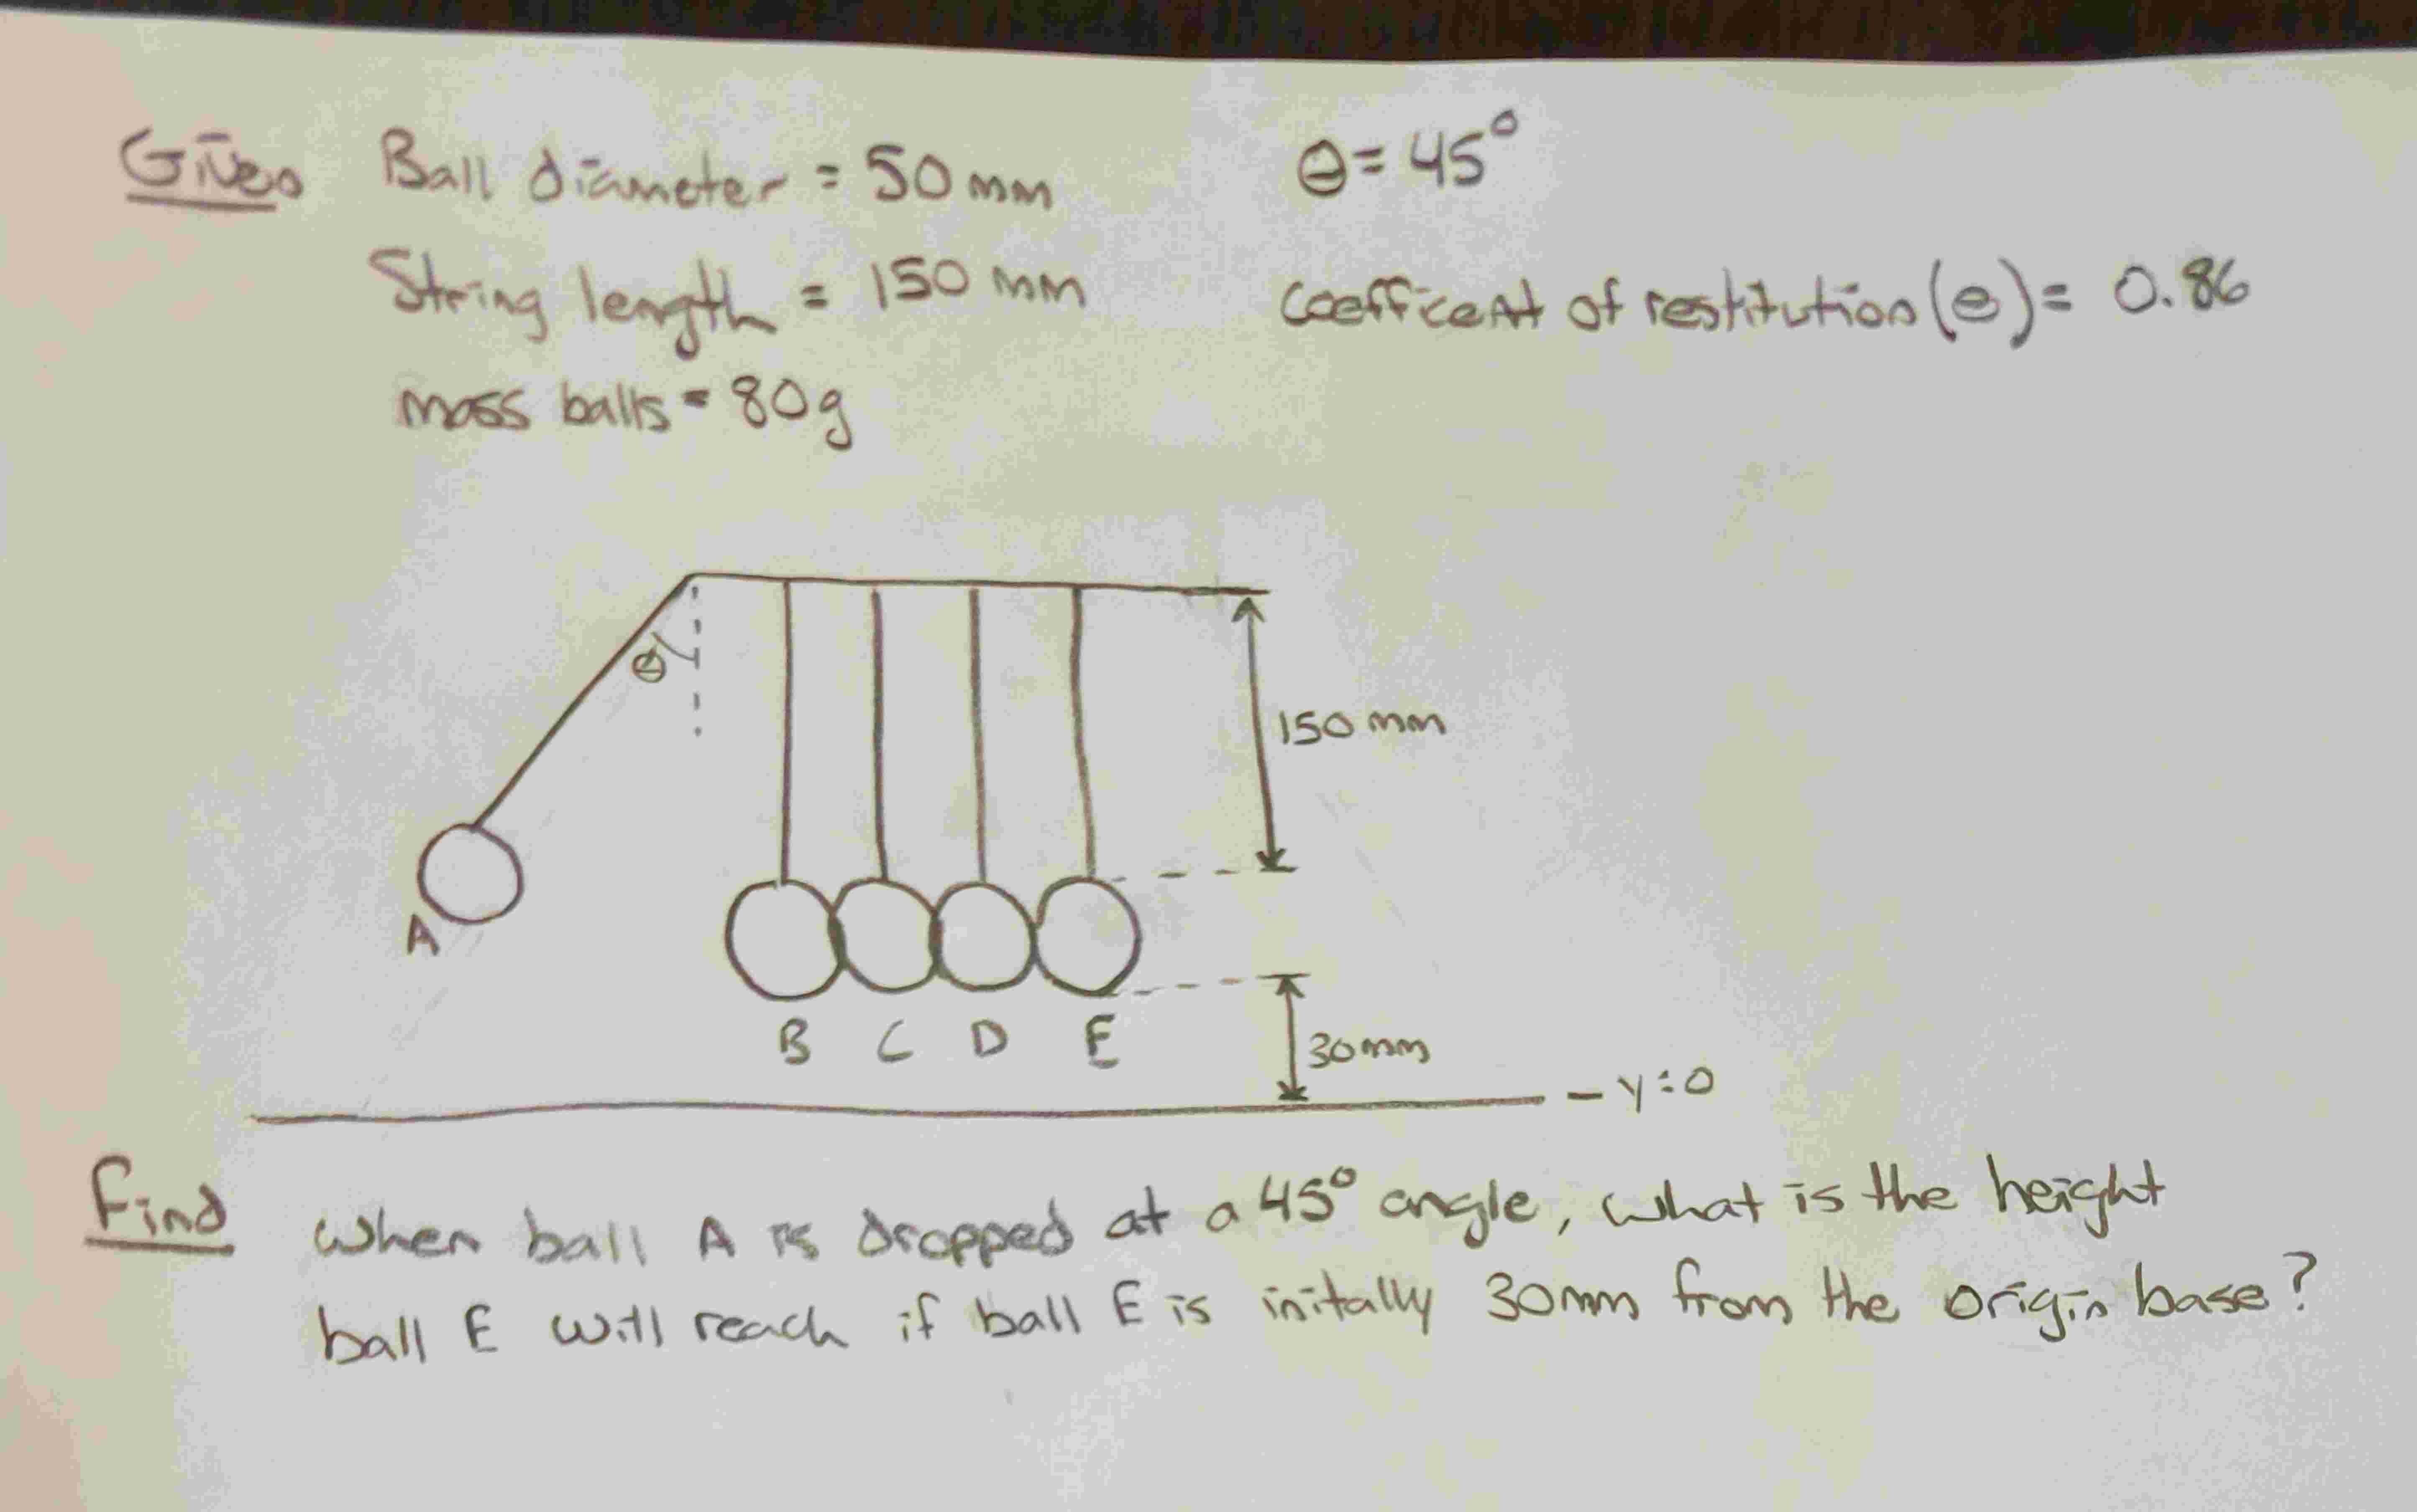 Given Ball diameter = 50 mm θ = 45°
String length = 150 mm coefficent of restitution (e) = 0.86
mass balls = 80g
θ
150 mm
A
B C D E
30mm
- y=0
Find When ball A is dropped at a 45° angle, what is the height
ball E will reach if ball E is initally 30mm from the origin base?